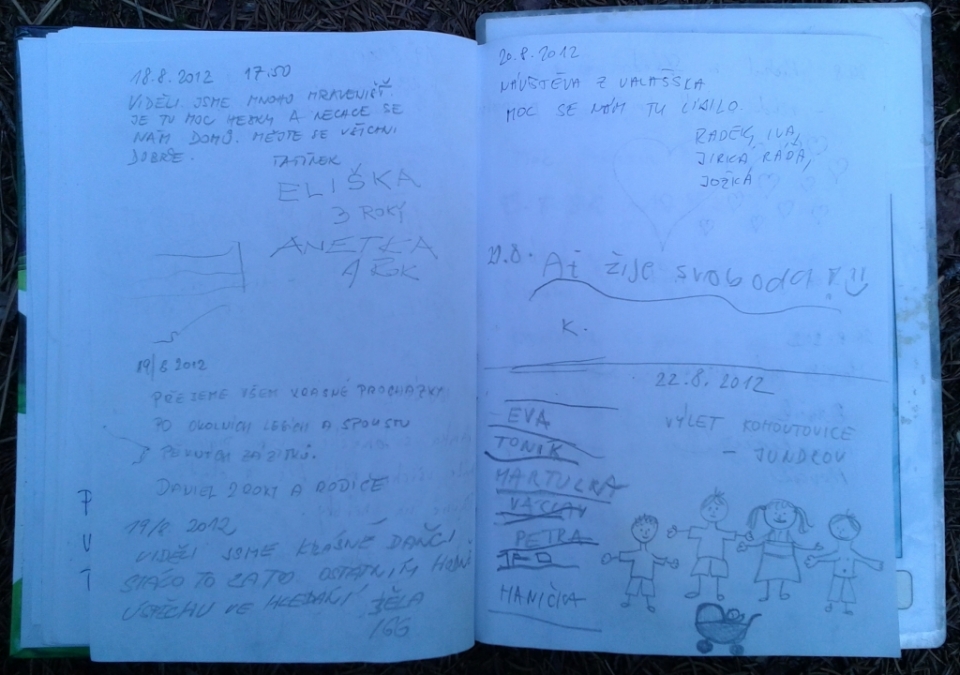 18.8.2012 17:50
VIDĚLI JSME MNOHO MRAVENIŠŤ.
JE TU MOC HEZKY A NECHCE SE
NÁM DOMŮ. MĚJTE SE VŠICHNI
DOBŘE.
TATÍNEK
ELIŠKA
3 ROKY
ANETKA
1 ROK
19/8 2012
PŘEJEME VŠEM KRÁSNÉ PROCHÁZKY
PO OKOLNÍCH LESÍCH A SPOUSTU
PĚKNÝCH ZÁŽITKŮ.
DANIEL 2 ROKY A RODIČE
19/8 2012
VIDĚLI JSME KRÁSNÉ DAŇČI
STÁLO TO ZA TO OSTATNÍM HODNĚ
ÚSPĚCHU VE HLEDÁNÍ
166
20.8.2012
NÁVŠTĚVA Z VALAŠSKA
MOC SE NÁM TU LÍBILO.
RADEK, IVA,
JIRKA, RÁĎA,
JOŽKA
21.8. Ať žije svoboda!
K.
22.8.2012
VÝLET KOHOUTOVICE
- JUNDROV
EVA
TONÍK
MARTULKA
VÁCLAV
PETRA
TEO
HANIČKA